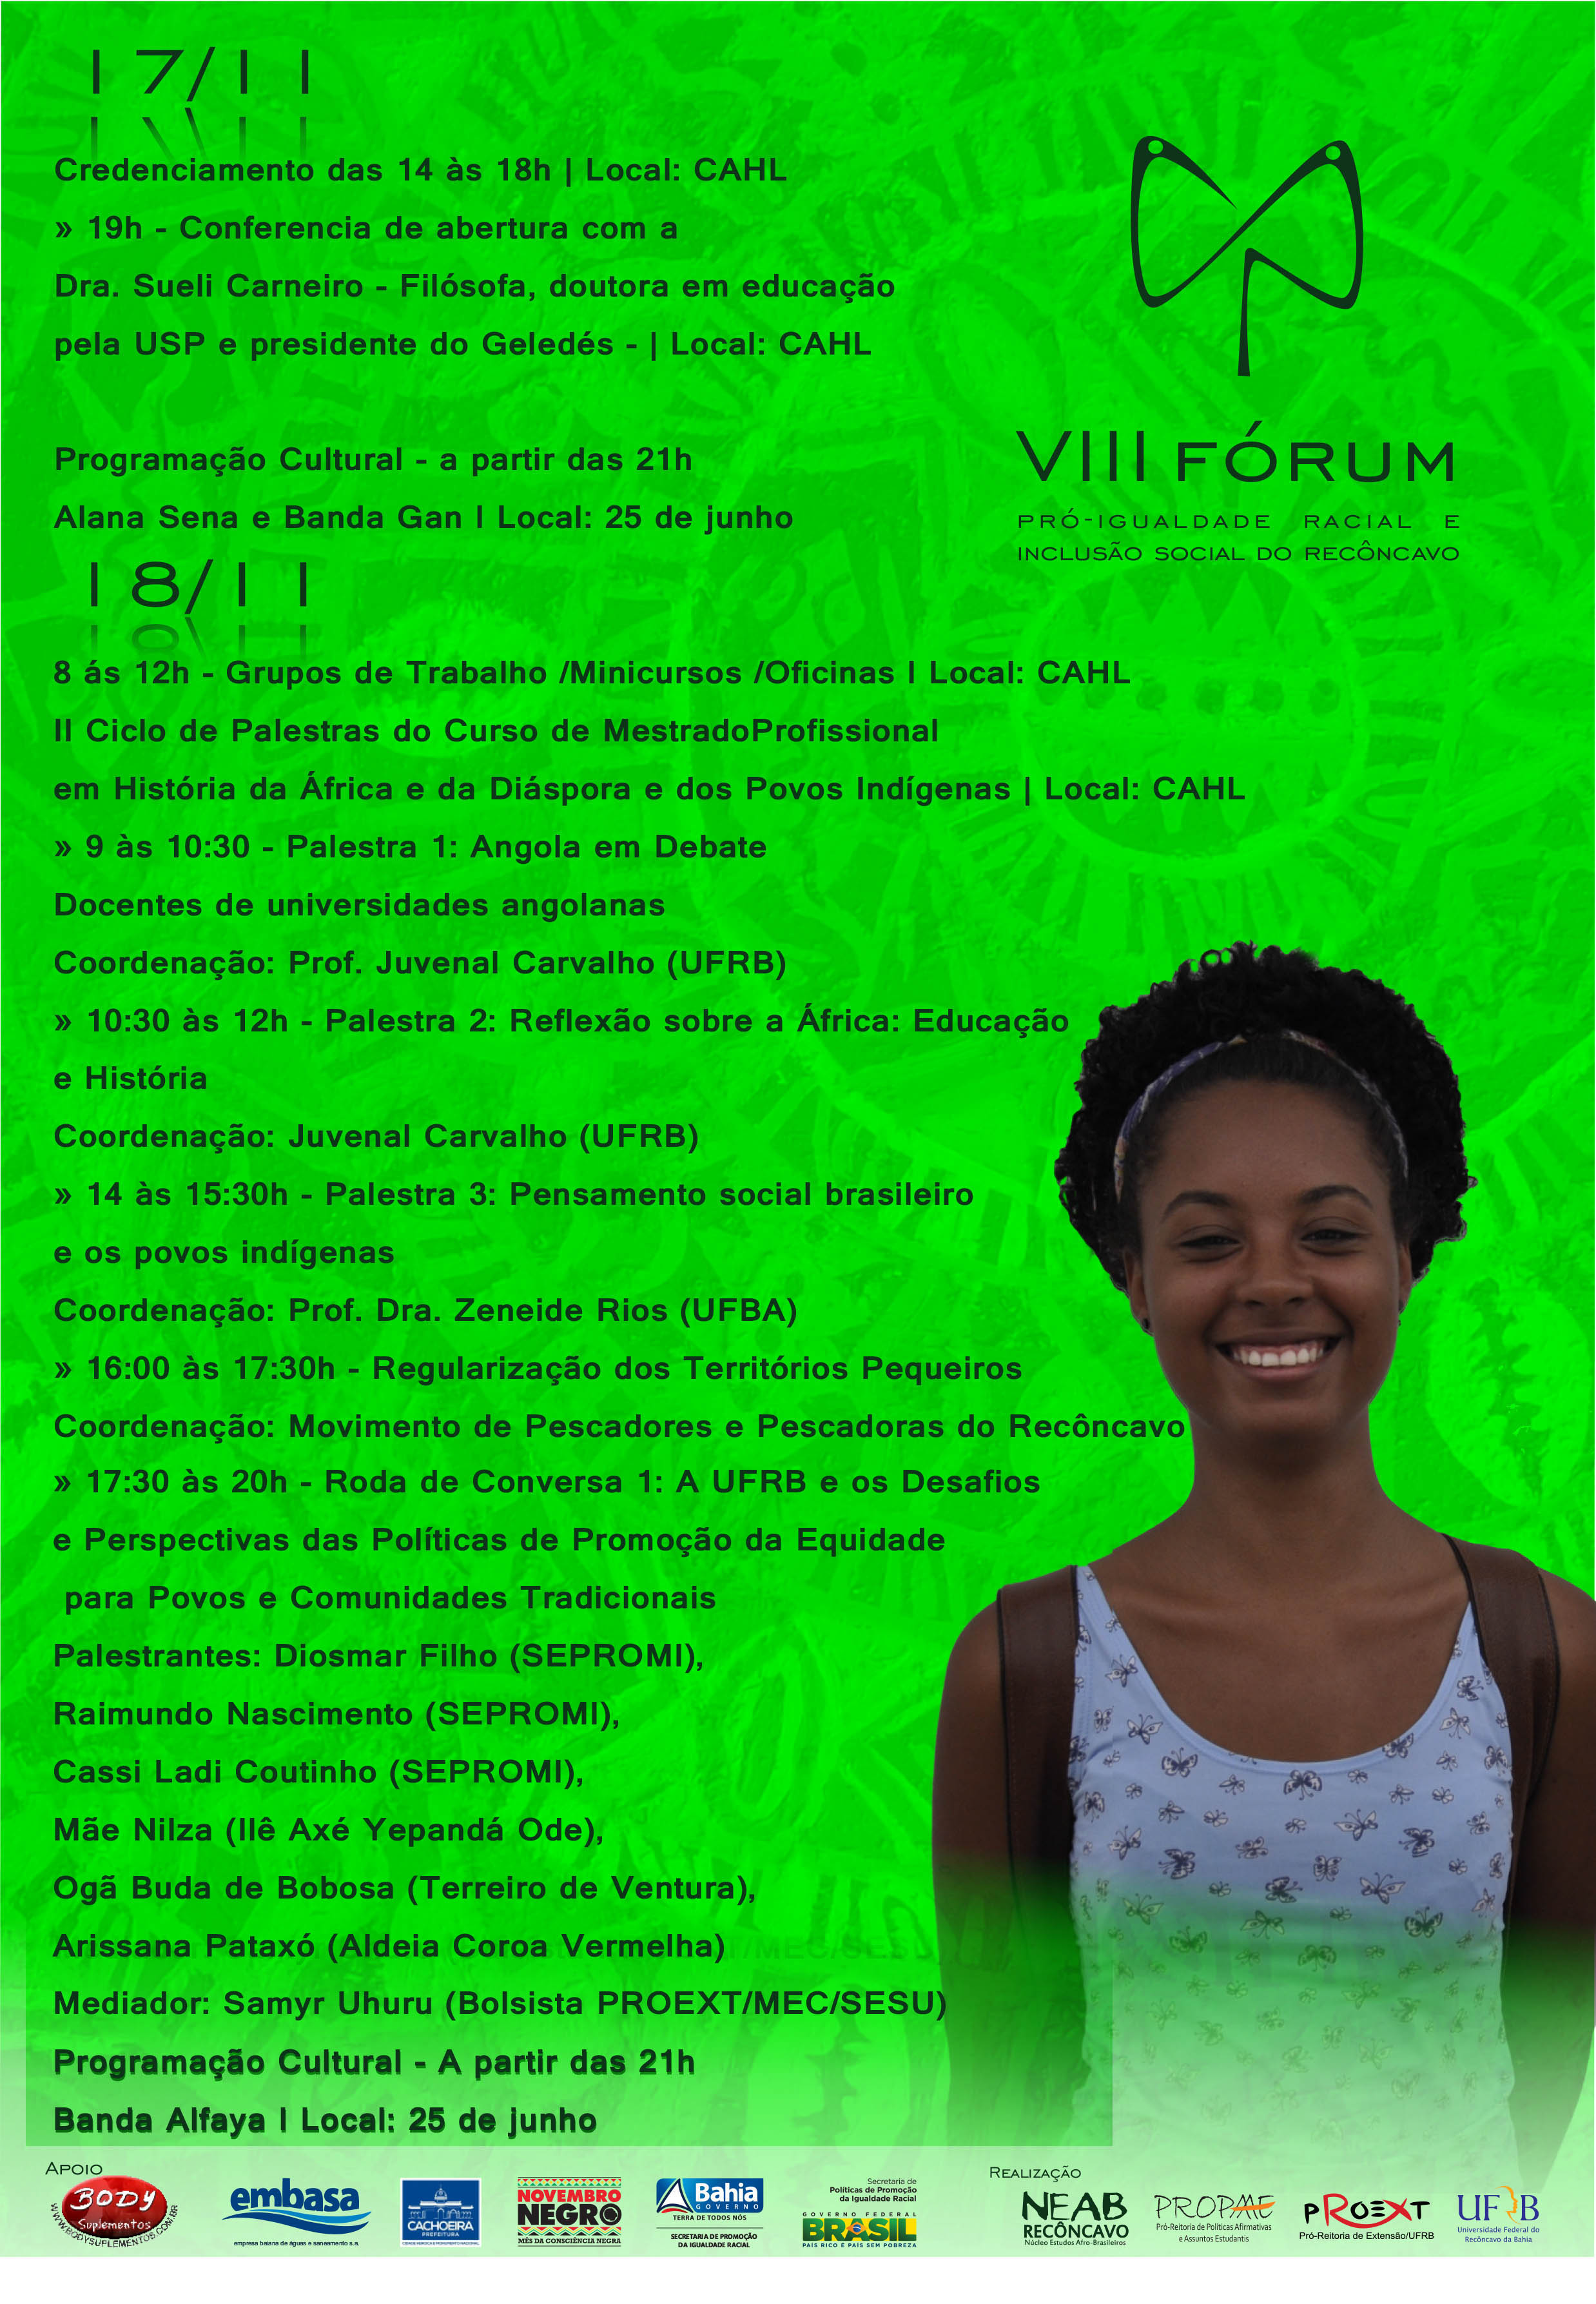 17/11
Credenciamento das 14 às 18h | Local: CAHL
» 19h - Conferencia de abertura com a
Dra. Sueli Carneiro - Filósofa, doutora em educação
pela USP e presidente do Geledés - | Local: CAHL
Programação Cultural - a partir das 21h
Alana Sena e Banda Gan I Local: 25 de junho
VIII FÓRUM
PRÓ-IGUALDADE RACIAL E
INCLUSÃO SOCIAL DO RECÔNCAVO
18/11
8 ás 12h - Grupos de Trabalho /Minicursos /Oficinas I Local: CAHL
II Ciclo de Palestras do Curso de MestradoProfissional
em História da África e da Diáspora e dos Povos Indígenas | Local: CAHL
» 9 às 10:30 - Palestra 1: Angola em Debate
Docentes de universidades angolanas
Coordenação: Prof. Juvenal Carvalho (UFRB)
» 10:30 às 12h - Palestra 2: Reflexão sobre a África: Educação
e História
Coordenação: Juvenal Carvalho (UFRB)
» 14 às 15:30h - Palestra 3: Pensamento social brasileiro
e os povos indígenas
Coordenação: Prof. Dra. Zeneide Rios (UFBA)
» 16:00 às 17:30h - Regularização dos Territórios Pequeiros
Coordenação: Movimento de Pescadores e Pescadoras do Recôncavo
» 17:30 às 20h - Roda de Conversa 1: A UFRB e os Desafios
e Perspectivas das Políticas de Promoção da Equidade
para Povos e Comunidades Tradicionais
Palestrantes: Diosmar Filho (SEPROMI),
Raimundo Nascimento (SEPROMI),
Cassi Ladi Coutinho (SEPROMI),
Mãe Nilza (Ilê Axé Yepandá Ode),
Ogã Buda de Bobosa (Terreiro de Ventura),
Arissana Pataxó (Aldeia Coroa Vermelha)
Mediador: Samyr Uhuru (Bolsista PROEXT/MEC/SESU)
Programação Cultural - A partir das 21h
Banda Alfaya I Local: 25 de junho
APOIO
BODY
Suplementos
WWW.BODYSUPLEMENTOS.COM.BR
embasa
empresa baiana de águas e saneamento s.a.
CACHOEIRA
PREFEITURA
NOVEMBRO
NEGRO
MÊS DA CONSCIÊNCIA NEGRA
Bahia
GOVERNO
TERRA DE TODOS NÓS
SECRETARIA DE PROMOÇÃO
DA IGUALDADE RACIAL
Secretaria de
Políticas de Promoção
da Igualdade Racial
GOVERNO FEDERAL
BRASIL
PAÍS RICO É PAÍS SEM POBREZA
REALIZAÇÃO
NEAB
RECÔNCAVO
Núcleo Estudos Afro-Brasileiros
PROPAAE
Pró-Reitoria de Políticas Afirmativas
e Assuntos Estudantis
PROEXT
Pró-Reitoria de Extensão/UFRB
UFRB
Universidade Federal do
Recôncavo da Bahia